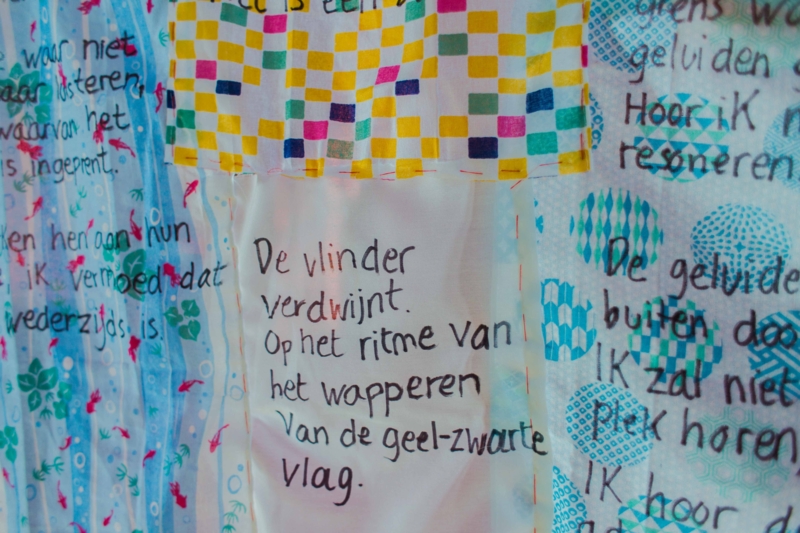 is een
waar niet
luisteren,
waarvan het
is ingeprent.
hen aan hun
ik vermoed dat
wederzijds is.
De vlinder
verdwijnt.
Op het ritme van
het wapperen
Van de geel-zwarte
vlag.
grens
geluiden
Hoor ik
resoneren.
De geluide
buiten doo
Ik zal niet
plek horen,
Ik hoor d